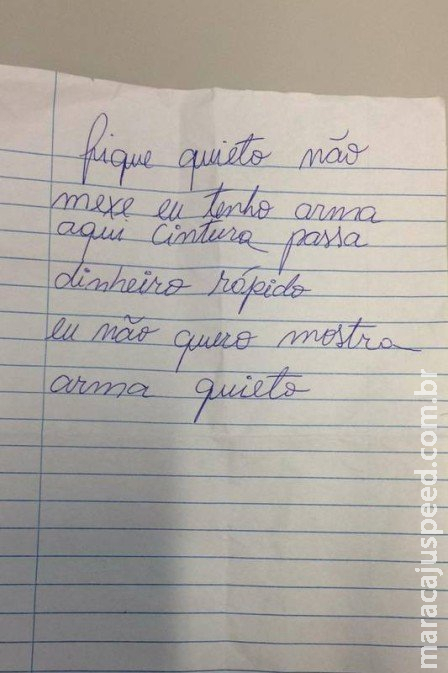 fique quieto não
mexe eu tenho arma
aqui cintura passa
dinheiro rápido
eu não quero mostra
arma quieto
maracajuspeed.com